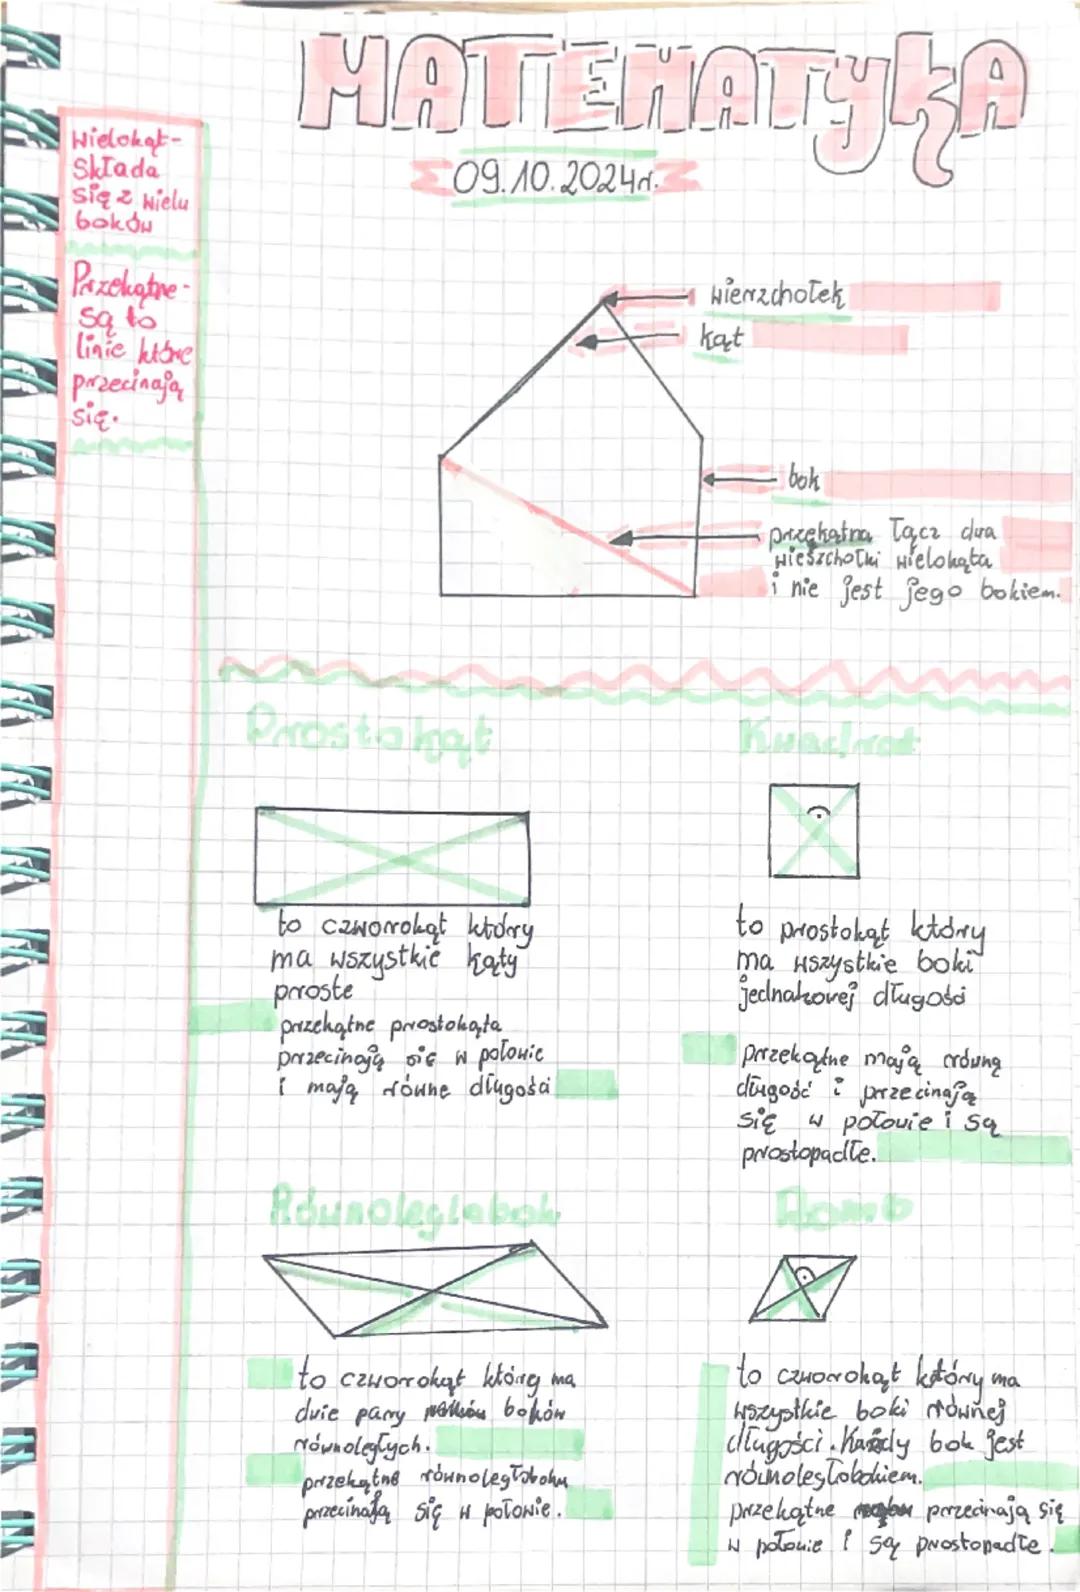 MATEMATYKA
09.10.2024r.
Wielokąt-
Składa
się z wielu
boków
Przekątne-
są to
linie które
przecinają
się.
wierzchołek
kąt
bok
przekątna łącz dwa
wieszchołki wielokąta
i nie jest jego bokiem.
Prostokąt
to czworokąt który
ma wszystkie kąty
proste
przekątne prostokąta
przecinają się w połowie
i mają równe długości
Kwadrat
to prostokąt który
ma wszystkie boki
jednakowej długości
przekątne mają równą
długość i przecinają
się w połowie i są
prostopadłe.
Równoległobok
to czworokąt który ma
dwie pary boków
równoległych.
przekątne równoległoboku
przecinają się w połowie.
Romb
to czworokąt który ma
wszystkie boki równej
długości. Każdy bok jest
równoległobokiem.
przekątne przecinają się
w połowie i są prostopadłe.